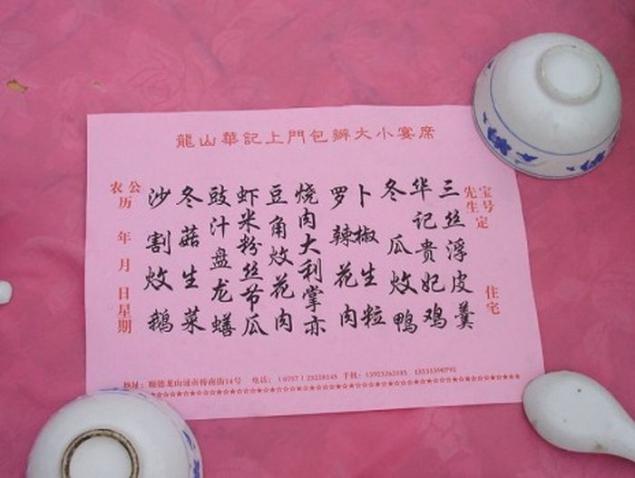 龍山華記上門包辦大小宴席
宝号定
先生 住宅
三丝浮皮羹
华记贵妃鸡
冬瓜炆鸭
罗卜辣椒花生肉粒
烧肉大利掌亦
豆角炆花肉
虾米粉丝节瓜
豉汁盘龙鳝
冬菇生菜
沙割炆鹅
公
农历 年 月 日星期
地址：顺德龙山涌南桥南街14号 电话： 手机：